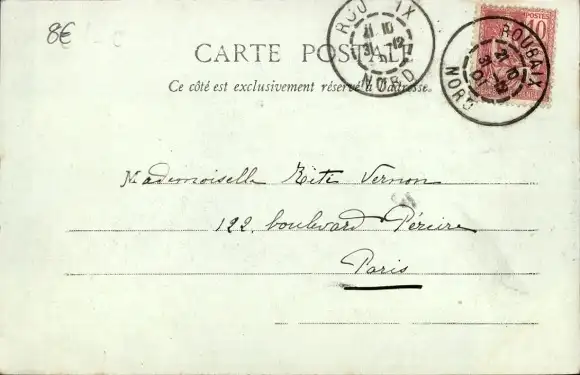 8€
CARTE POSTALE
Ce côté est exclusivement réservé à l'adresse.
ROUBAIX
NORD
POSTES
10
ROUBAIX
NORD
Mademoiselle Kéti Vernon
122, boulevard Péreire
Paris